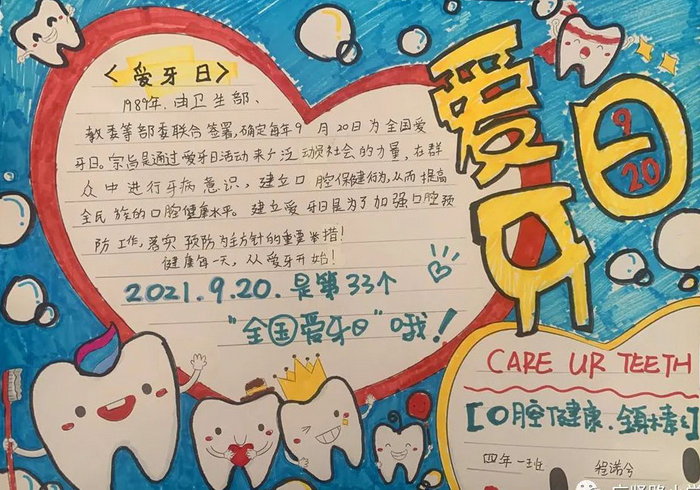 <爱牙日>
1989年,由卫生部、
教委等部委联合签署,确定每年9月20日为全国爱
牙日。宗旨是通过爱牙日活动来广泛动员社会的力量,在群
众中进行牙病意识,建立口腔保健行为,从而提高
全民族的口腔健康水平。建立爱牙日是为了加强口腔预
防工作,落实预防为主方针的重要举措!
健康每一天,从爱牙开始!
2021.9.20.是第33个
"全国爱牙日"哦!
爱牙日
9
20
CARE UR TEETH
口腔健康.
四年一班